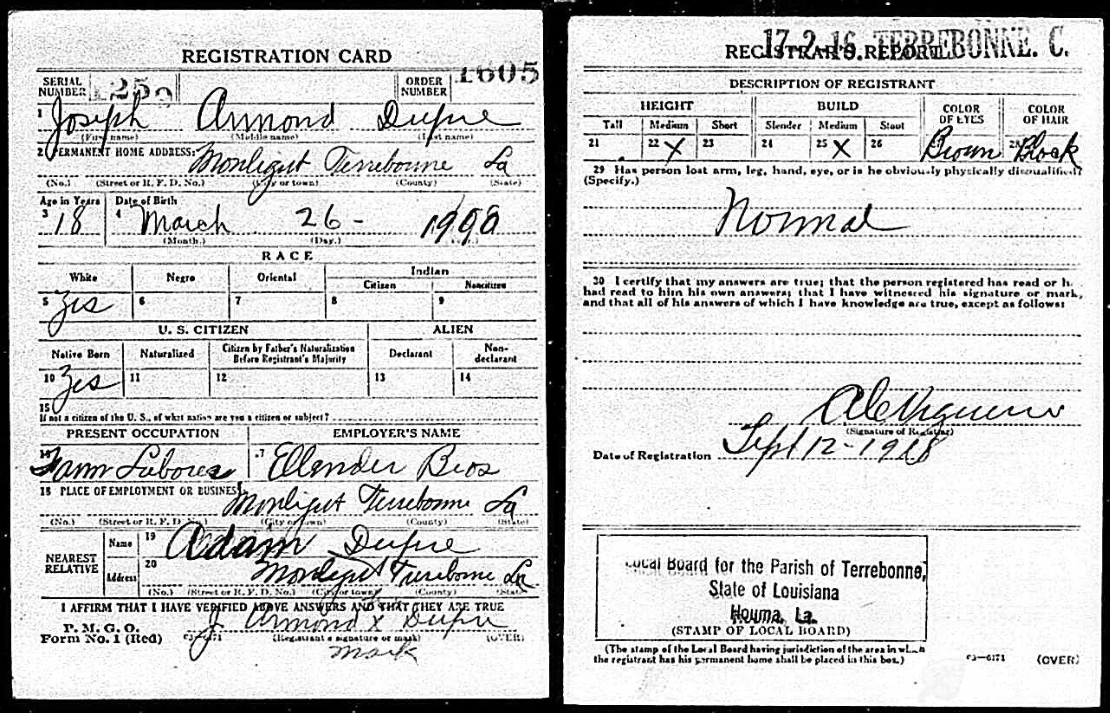 REGISTRATION CARD
SERIAL NUMBER 1259
ORDER NUMBER 1605
1 Joseph Armond Dupre
(First name) (Middle name) (Last name)
2 PERMANENT HOME ADDRESS: Montigut Terrebonne La
(No.) (Street or R. F. D. No.) (City or town) (County) (State)
Age in Years Date of Birth
3 18 4 March 26 - 1900
(Month.) (Day.)
RACE
White Negro Oriental Indian
Citizen Noncitizen
5 Yes 6 7 8 9
U. S. CITIZEN ALIEN
Native Born Naturalized Citizen by Father's Naturalization Before Registrant's Majority Declarant Non-declarant
10 Yes 11 12 13 14
15
If not a citizen of the U. S., of what nation are you a citizen or subject?
PRESENT OCCUPATION EMPLOYER'S NAME
16 Farm Laborer 17 Ellender Bros
18 PLACE OF EMPLOYMENT OR BUSINESS
Montigut Terrebonne La
(No.) (Street or R. F. D. No.) (City or town) (County) (State)
NEAREST RELATIVE Name 19 Adam Dupre
Address 20 Montigut Terrebonne La
(No.) (Street or R. F. D. No.) (City or town) (County) (State)
I AFFIRM THAT I HAVE VERIFIED ABOVE ANSWERS AND THAT THEY ARE TRUE
P. M. G. O.
Form No. 1 (Red) 03-6171 J. Armond X Dupre
(Registrant's signature or mark) (OVER)
mark
17-2-16 TERREBONNE. C.
REGISTRAR'S REPORT
DESCRIPTION OF REGISTRANT
HEIGHT BUILD COLOR OF EYES COLOR OF HAIR
Tall Medium Short Slender Medium Stout
21 22 X 23 24 25 X 26 Brown 28 Black
29 Has person lost arm, leg, hand, eye, or is he obviously physically disqualified?
(Specify.)
Normal
30 I certify that my answers are true; that the person registered has read or h
had read to him his own answers; that I have witnessed his signature or mark,
and that all of his answers of which I have knowledge are true, except as follows:
(Signature of Registrar)
Date of Registration Sept 12-1918
Local Board for the Parish of Terrebonne,
State of Louisiana
Houma, La.
(STAMP OF LOCAL BOARD)
(The stamp of the Local Board having jurisdiction of the area in which
the registrant has his permanent home shall be placed in this box.)
03-6171 (OVER)